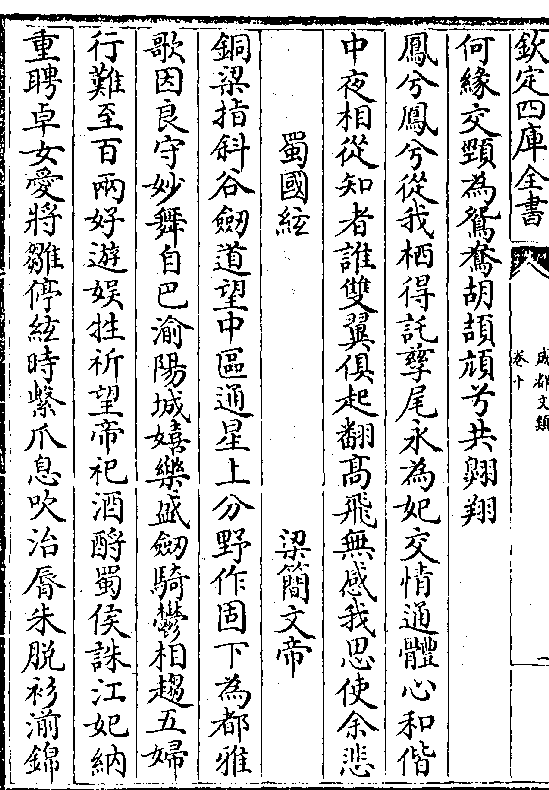 欽定四庫全書
成都文類
卷十
何緣交頸為鴛鴦胡頡頏兮共翺翔
鳳兮鳳兮從我栖得託孳尾永為妃交情通體心和偕
中夜相從知者誰雙翼俱起翻髙飛無感我思使余悲
蜀國絃
梁簡文帝
銅梁指斜谷劒道望中區通星上分野作固下為都雅
歌因良守妙舞自巴渝陽城嬉樂盛劒騎鬱相趨五婦
行難至百兩好遊娱牲祈望帝祀酒酹蜀侯誅江妃納
重聘卓女愛將雛停絃時繫爪息吹治脣朱脱衫湔錦